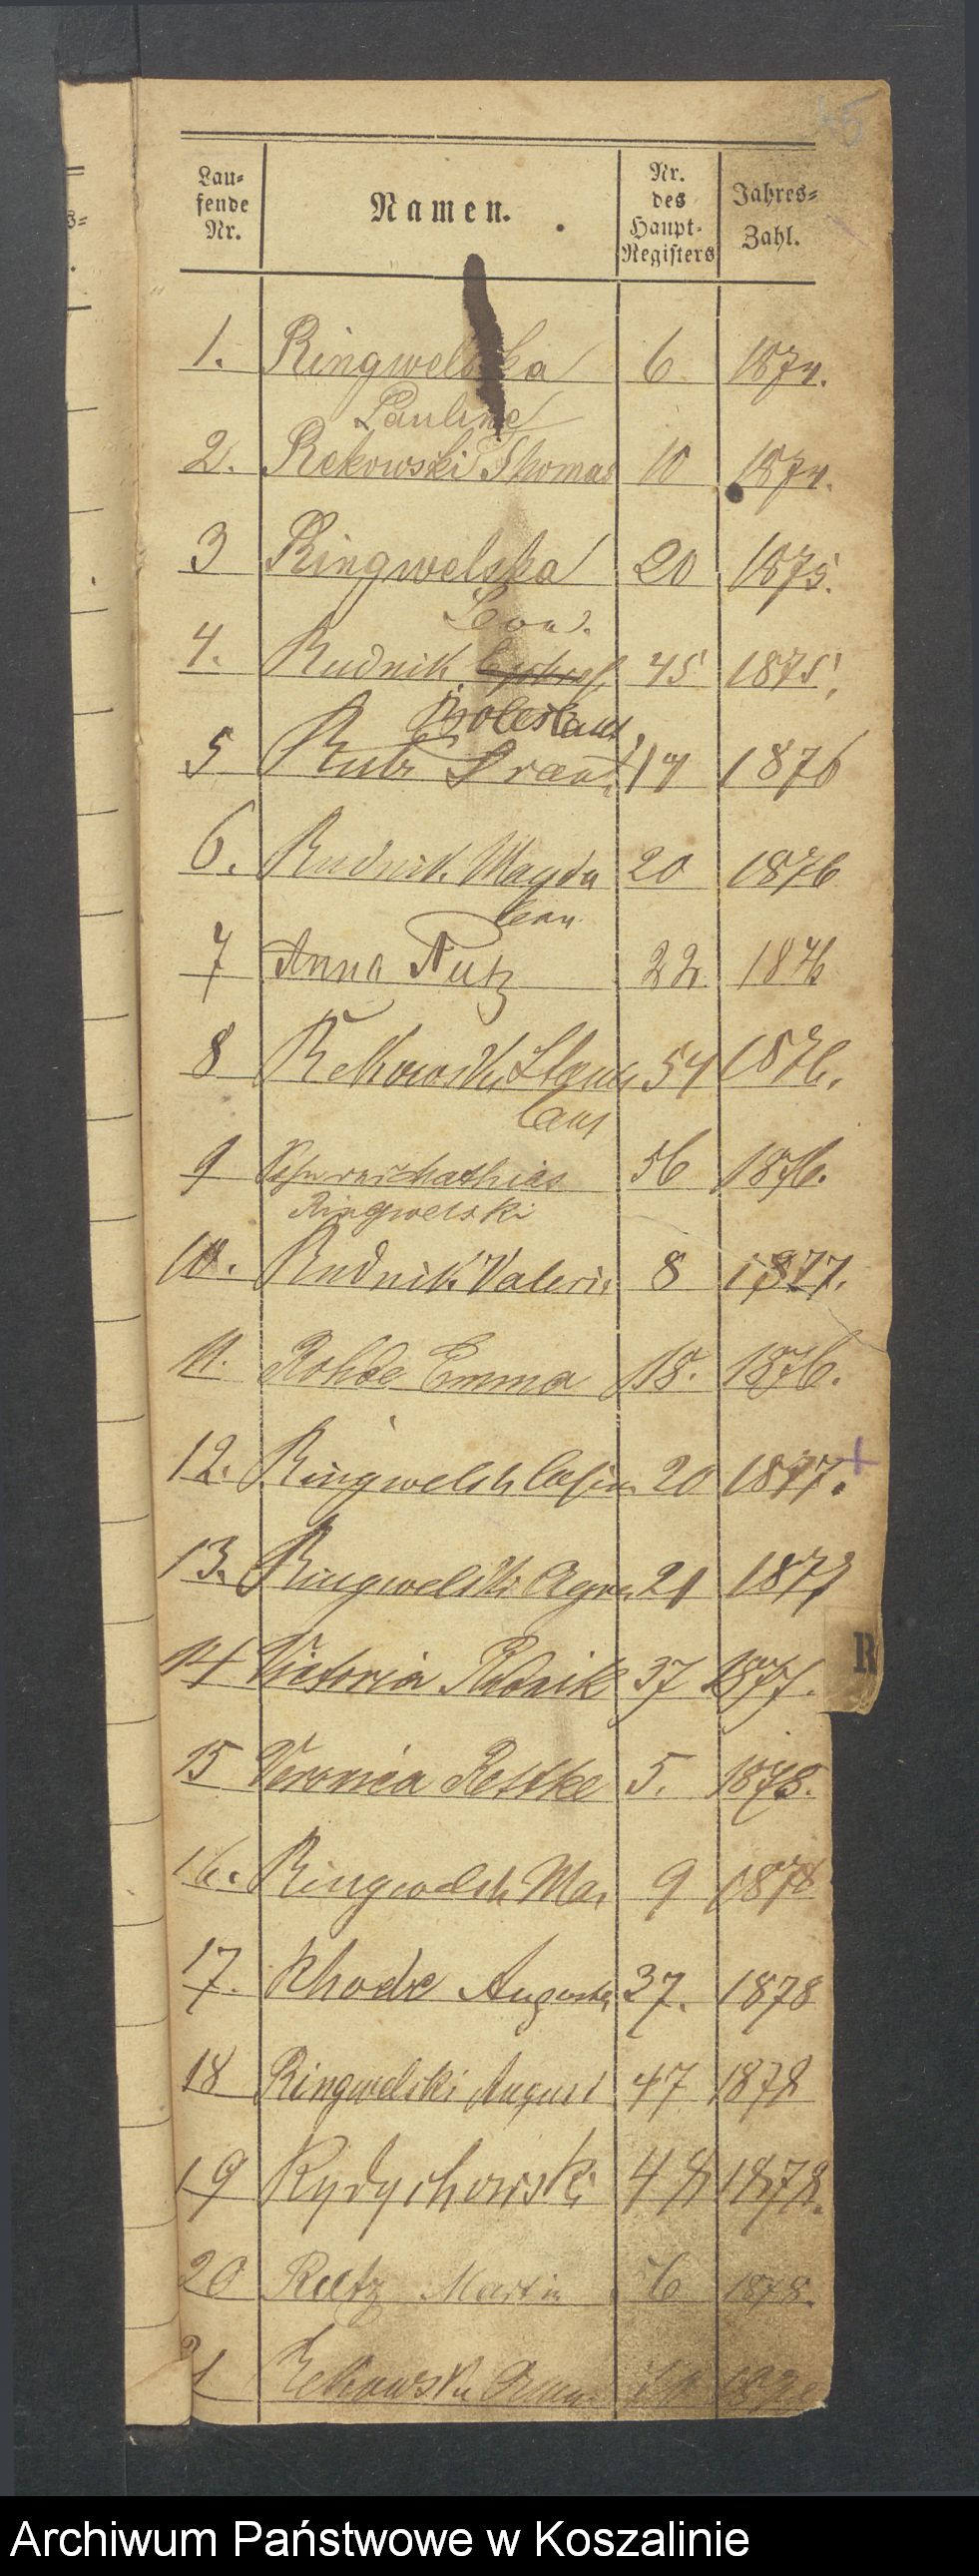 45
Lau-
fende
Nr.
Namen.
Nr.
des
Haupt-
Registers
Jahres-
Zahl.
1. Ringwelska 6 1874.
Pauline
2. Rekowski Thomas 10 1874.
3 Ringwelska 20 1875.
Leon
4. Rudnik 45 1875.
Boleslaus
5 Rutz Franz 14 1876
6. Rudnik Magda 20 1876
lena
7 Anna Rutz 22 1876
8 Rekowski Stanis 54 1876.
laus
9 Mathias 56 1876.
Ringwelski
10. Rudnik Valeria 8 1877.
11. Rohde Emma 18. 1876.
12. Ringwelski 20 1877.
13. Ringwelski Agnes 21 1877
R
14 Victoria Rudnik 37 1877.
15 Veronica Rettke 5. 1878.
16. Ringwelski Mar 9 1878
17. Rhode Auguste 37. 1878
18 Ringwelski August 47 1878
19 Rydychowski 48 1878.
20 Rutz Martin 6 1878.
21 Rekowski
Archiwum Państwowe w Koszalinie